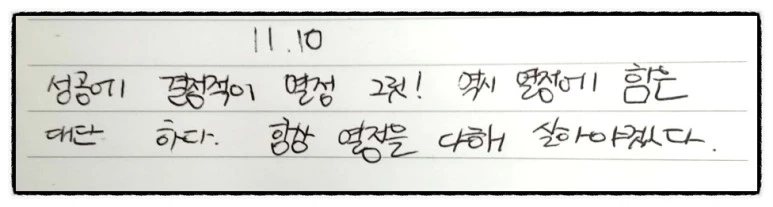 11.10
성공에 결정적이 열정 그릿! 역시 열정에 힘은
대단 하다. 항상 열정을 다해 살아야겠다.